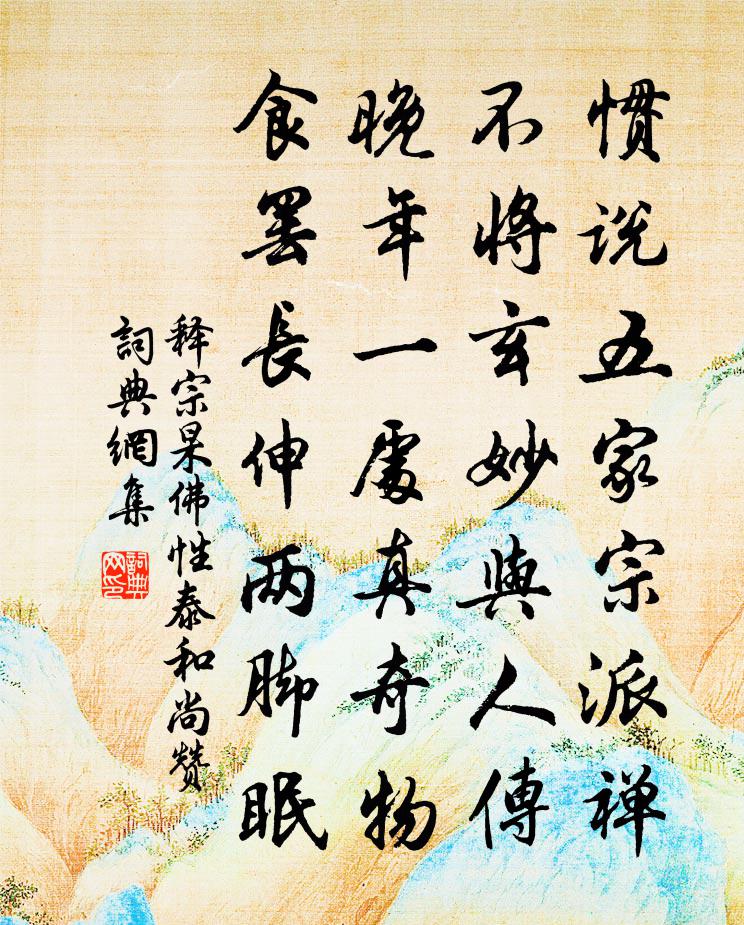 慣说五家宗派禅
不將玄妙與人傳
晚年一處真奇物
食罢長伸两脚眠
释宗杲佛性泰和尚赞
詞典網集
詞典网印